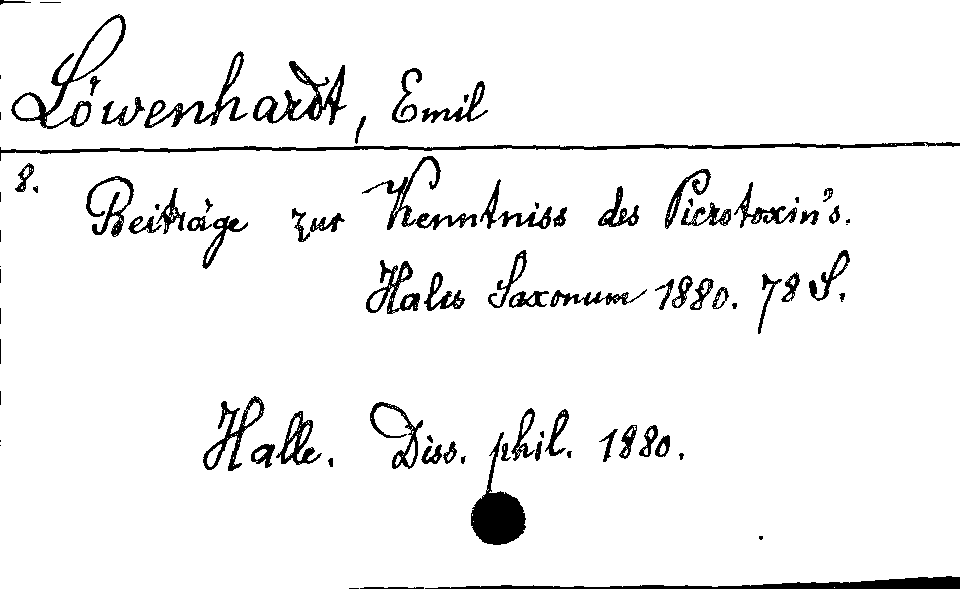 Löwenhardt, Emil
8.
Beiträge zur Kenntniss des Picrotoxin's.
Halis Saxonum 1880. 78 S.
Halle. Diss. phil. 1880.